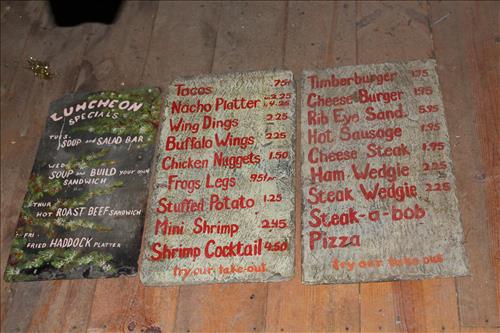 LUNCHEON
SPECIALS
TUES.
SOUP and SALAD BAR
WED
SOUP and BUILD your own
SANDWICH
THUR
HOT ROAST BEEF SANDWICH
FRI
FRIED HADDOCK PLATTER
Tacos 75¢
Nacho Platter 2.25
4.25
Wing Dings 2.25
Buffalo Wings 2.25
Chicken Nuggets 1.50
Frogs Legs
Stuffed Potato 1.25
Mini Shrimp 2.45
Shrimp Cocktail 4.50
try our take-out
Timberburger 1.75
Cheese Burger 1.95
Rib Eye Sand. 5.95
Hot Sausage 1.95
Cheese Steak 1.95
Ham Wedgie 2.25
Steak Wedgie 2.25
Steak-a-bob
Pizza
try our take-out